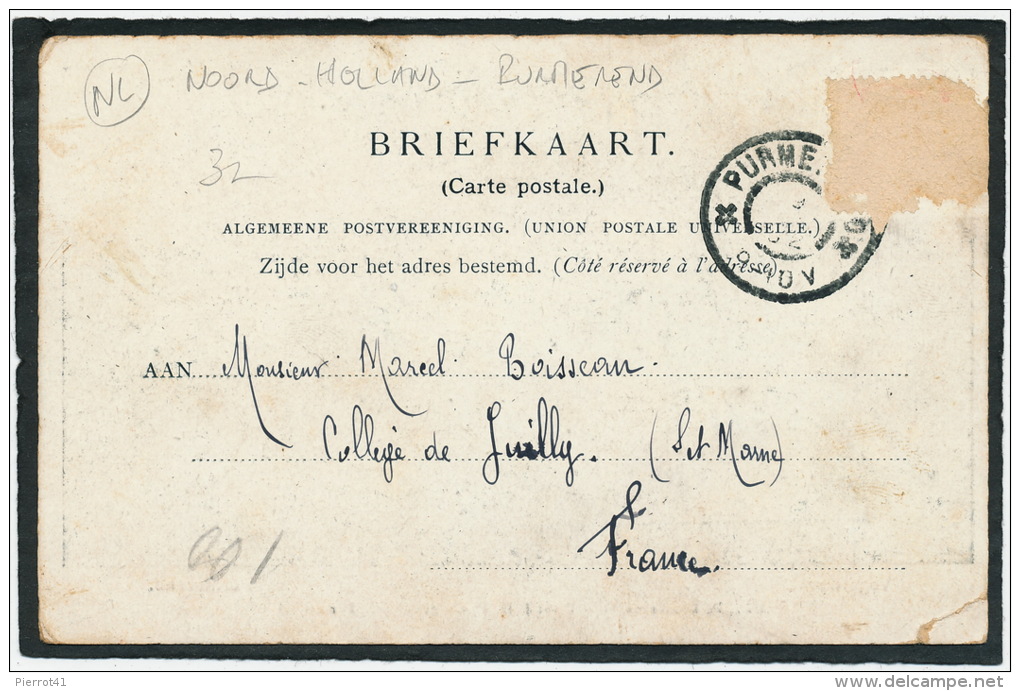 NL NOORD - HOLLAND - PURMEREND
32
BRIEFKAART.
(Carte postale.)
ALGEMEENE POSTVEREENIGING. (UNION POSTALE UNIVERSELLE.)
Zijde voor het adres bestemd. (Côté réservé à l'adresse)
PURME
AAN Monsieur Marcel Boisseau.
Collège de Juilly. (S et Marne)
France.
Pierrot41
www.delcampe.net